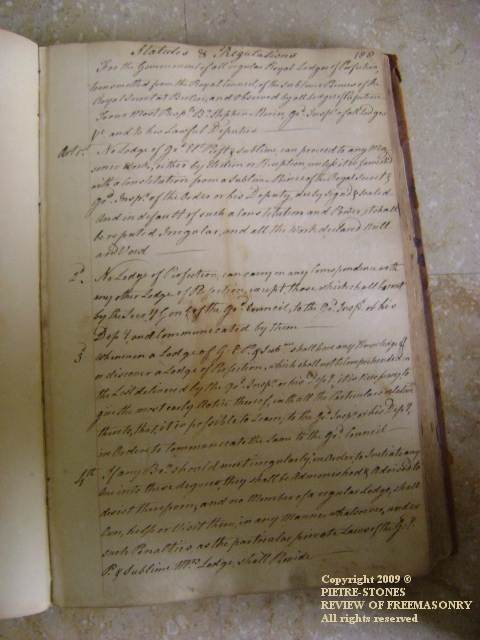 Statutes & Regulations 180
For the Government of all regular Royal Lodges of Perfection
transmitted from the Royal Council, of the Sublime Princes of the
Royal Secret at Berlin, and observed by all Lodges of
To our Most Br. Stephen Morin, Gd. Inspr. of all Lodges
&c and to his Lawful Deputies
Art. 1st. No Lodge of Gd. Elt. Perft. & Sublime, can proceed to any
Work, either by Election or Reception, unless it is
with a Constitution from a Sublime Prince of the Royal Secret &
Gd. Inspr. of the Order or his Deputy, duly Signed & Sealed
and in default of such a Constitution and Power, it shall
be reputed Irregular, and all the Work declared Null
and Void
2d. No Lodge of Perfection, can carry on any Correspondence with
any other Lodge of Perfection, except those which shall be sent
by the Secy. Genl. of the Gd. Council, to the Gd. Inspr. or his
Depy. and Communicated by them
3 Whenever a Lodge of G. E. P. & Subme. shall have any Knowledge of
or discover a Lodge of Perfection, which shall not be comprehended in
the List delivered by the Gd. Inspr. or his Depy. it is necessary to
give the most early Notice thereof, with all the Particulars relative
thereto, that it is possible to Learn, to the Gd. Inspr. or his Depy.
in Order to Communicate the Same to the Gd. Council
4th If any Br. should most irregularly, in Order to Initiate any
One into these degrees, they shall be Admonished & Advised to
desist therefrom, and no Member of a regular Lodge, shall
Own, help or Visit them, in any Manner whatsoever, under
such Penalties, as the particular private Laws of the G. E.
P. & Sublime Mrs. Lodge, shall Provide
Copyright 2009 ©
PIETRE-STONES
REVIEW OF FREEMASONRY
All rights reserved